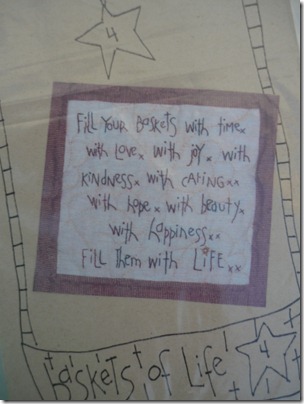 4
Fill Your Baskets with time x
with Love x with joy x with
kindness x with caring x x
with hope x with beauty x
with happiness x x
Fill them with LiFE x x
Baskets of Life
4